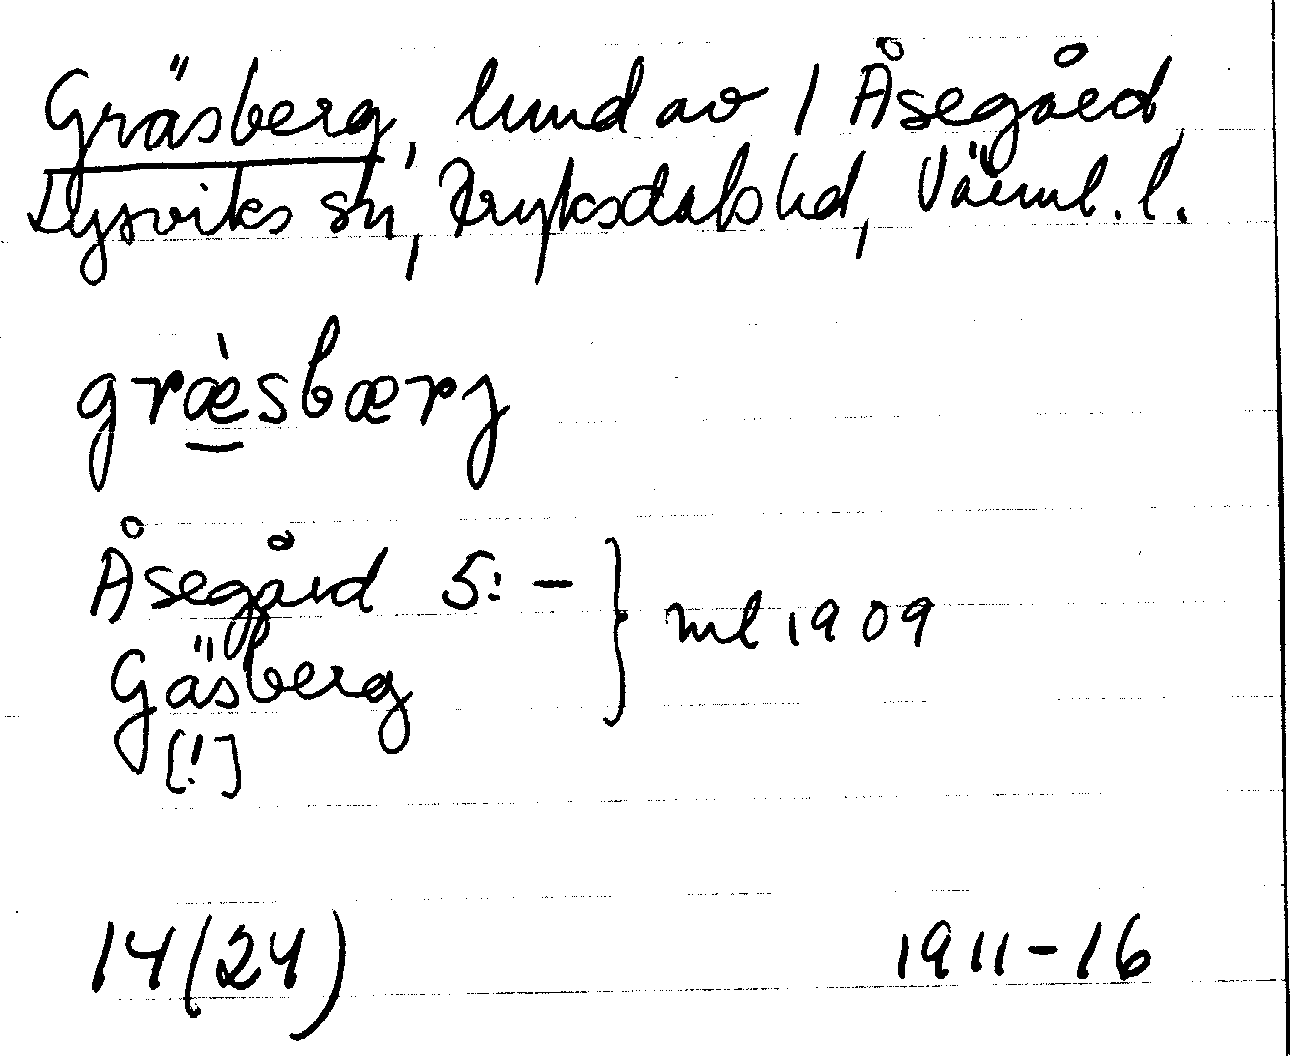 Gräsberg, lund av 1 Åsegård,
Lysviks sn, Fryksdals hd, Värml. l.
græ̀sbærj
Åsegård 5:-
Gäsberg
[!]
} ml 1909
14(24)
1911-16